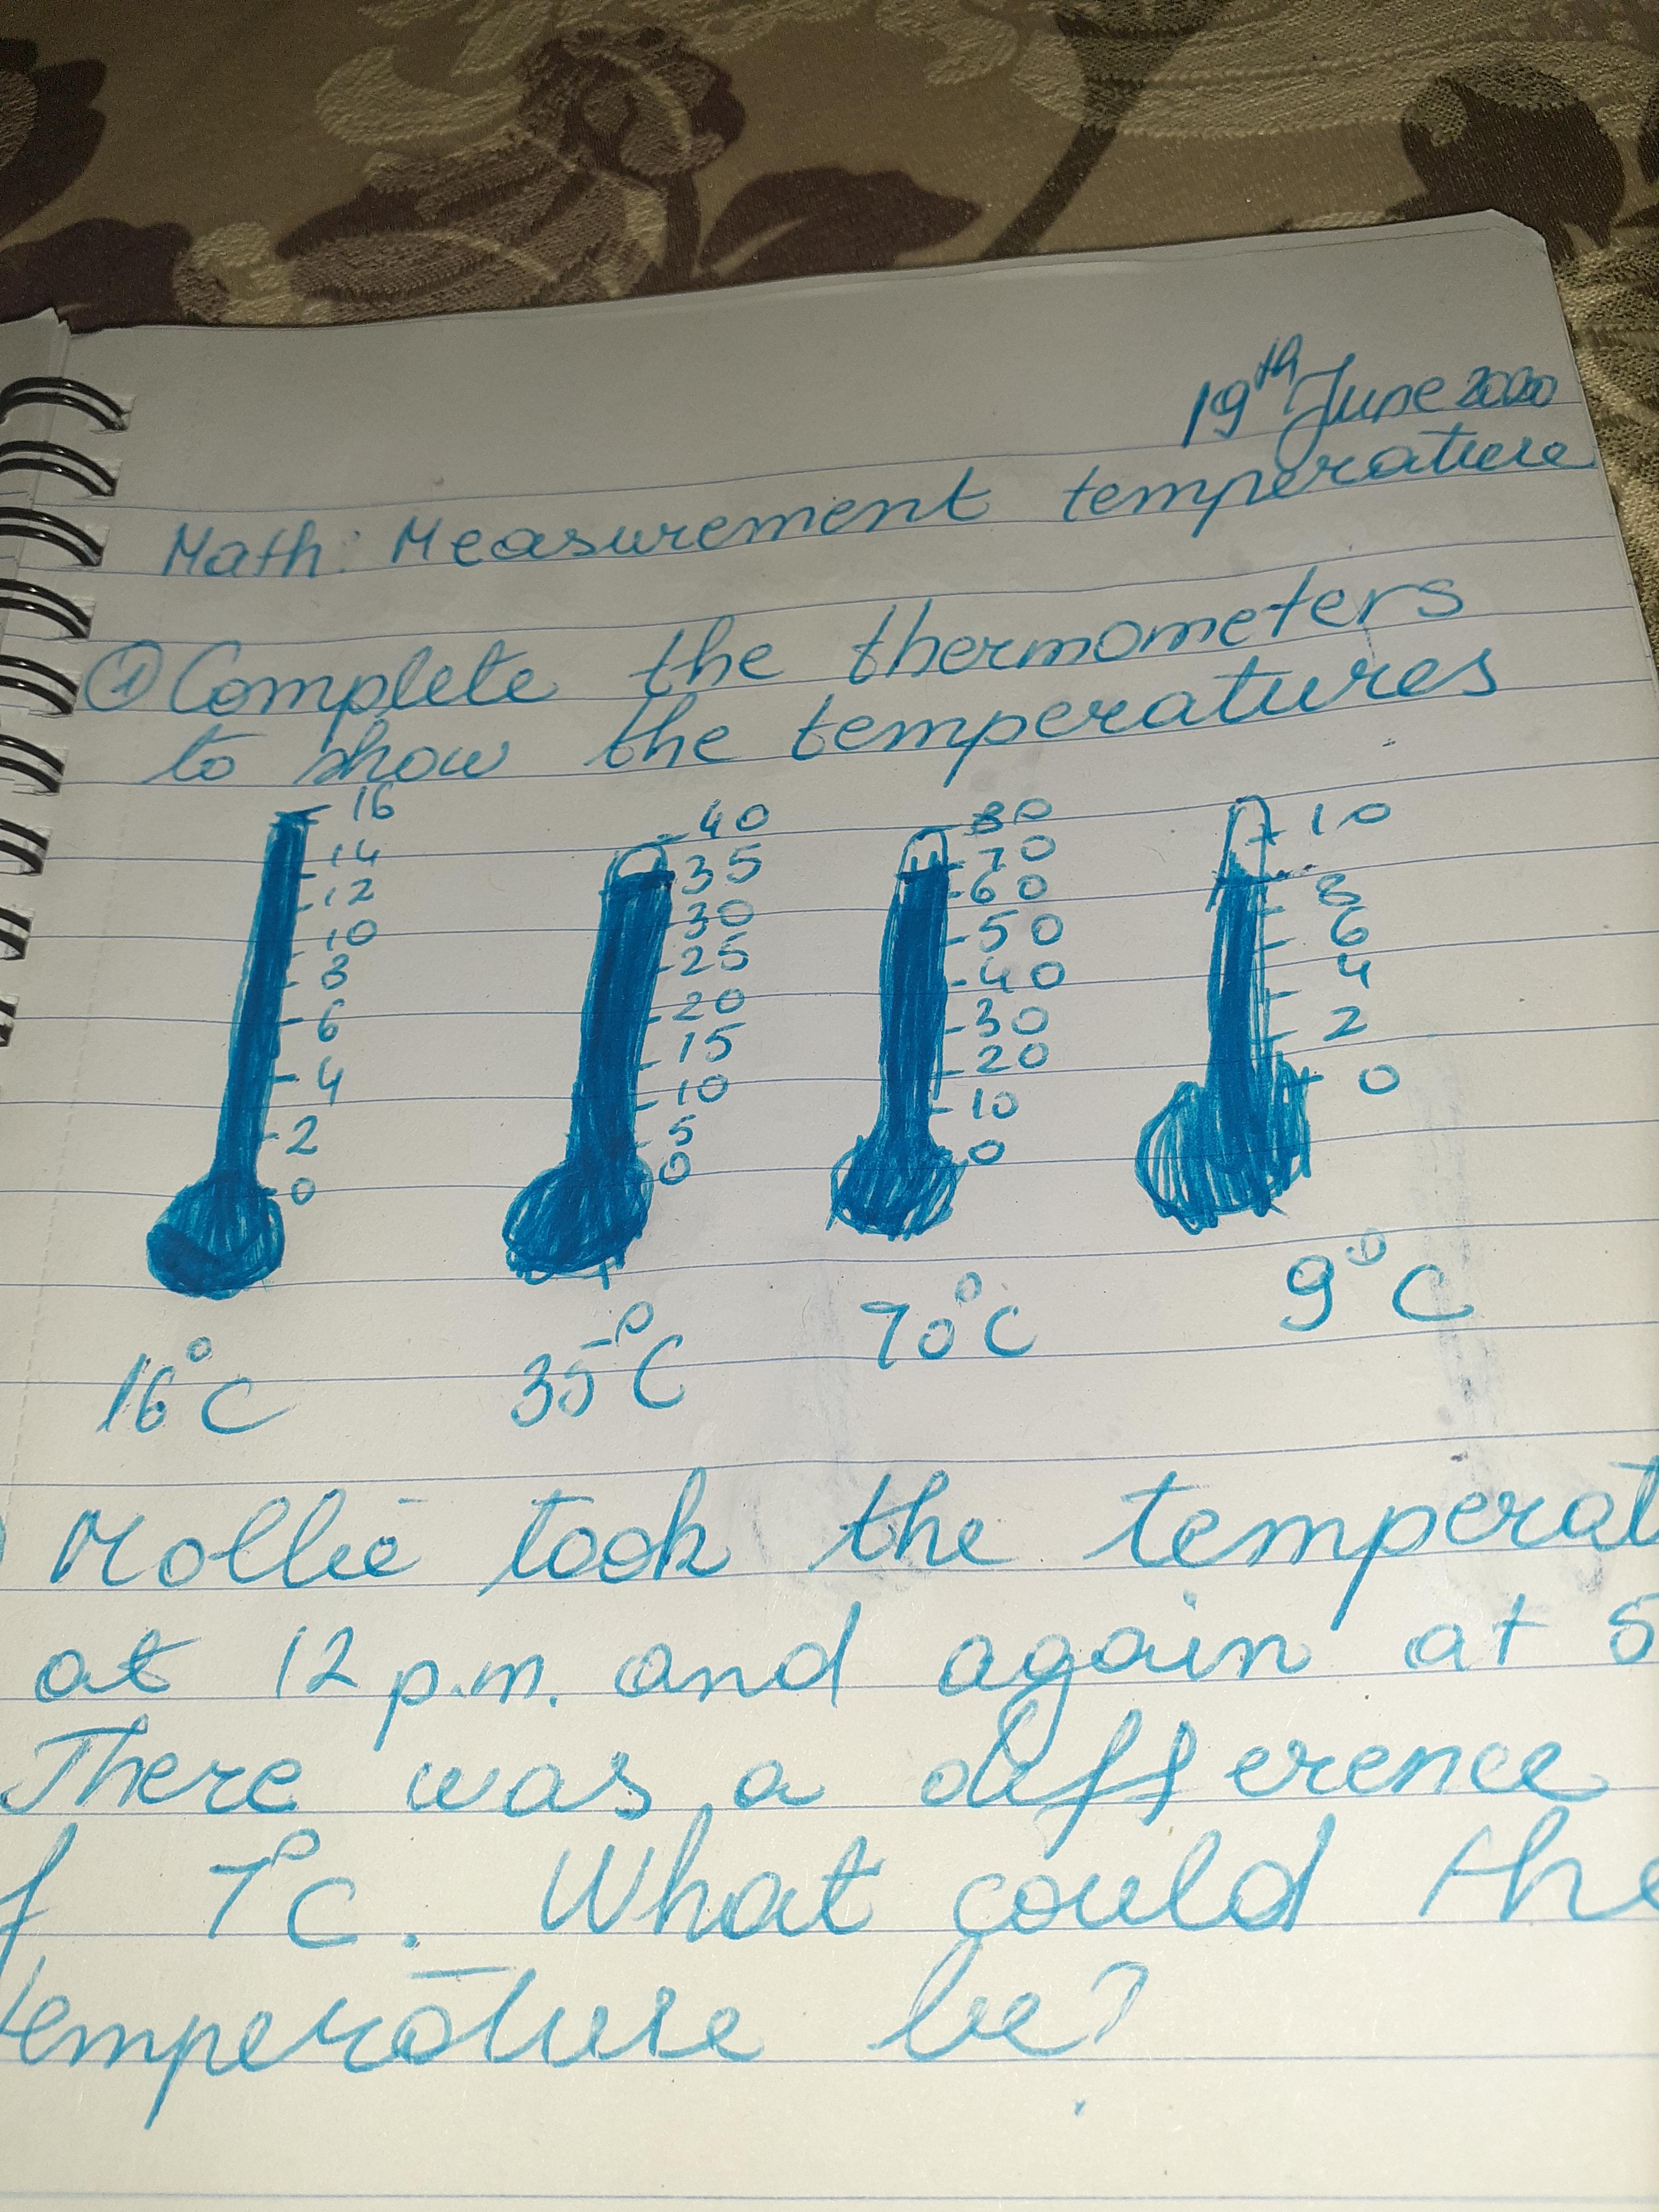 19th June 2020
Math: Measurement temperature
① Complete the thermometers
to show the temperatures
16
14
12
10
8
6
4
2
0
40
35
30
25
20
15
10
5
0
80
70
60
50
40
30
20
10
0
10
8
6
4
2
0
16°C 35°C 70°C 9°C
Mollie took the temperat
at 12 p.m. and again at 5
There was a difference
f 7°C. What could the
temperature be?